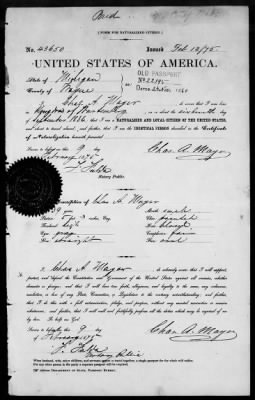 [FORM FOR NATURALIZED CITIZEN.]
No. 43650 Issued Feb 12/75
UNITED STATES OF AMERICA.
State of Michigan
County of Wayne
OLD PASSPORT
No. 22195
I, Chas. A. Mayer, do swear that I was born
in Kingdom of on or about the
day of September 1836, that I am a NATURALIZED AND LOYAL CITIZEN OF THE UNITED STATES,
and about to travel abroad; and further, that I am the IDENTICAL PERSON described in the Certificate
of Naturalization herewith presented.
Sworn to before me this 9 day
of February 1875 Chas. A. Mayer
Notary Public.
Description of Chas A. Mayer
Age: 39 years Mouth: small
Stature: 5 feet inches, Eng. Chin:
Forehead: high Hair:
Eyes: gray Complexion:
Nose: straight Face: oval
I, Chas A. Mayer do solemnly swear that I will support,
protect, and defend the Constitution and Government of the United States against all enemies, whether
domestic or foreign; and that I will bear true faith, allegiance, and loyalty to the same, any ordinance,
resolution, or law of any State, Convention, or Legislature to the contrary notwithstanding; and further,
that I do this with a full determination, pledge, and purpose, without any mental reservation or evasion
whatsoever; and further, that I will well and faithfully perform all the duties which may be required of me
by law. So help me God.
Sworn to before me this 9 day
of February 1875 Chas. A. Mayer
Notary Public